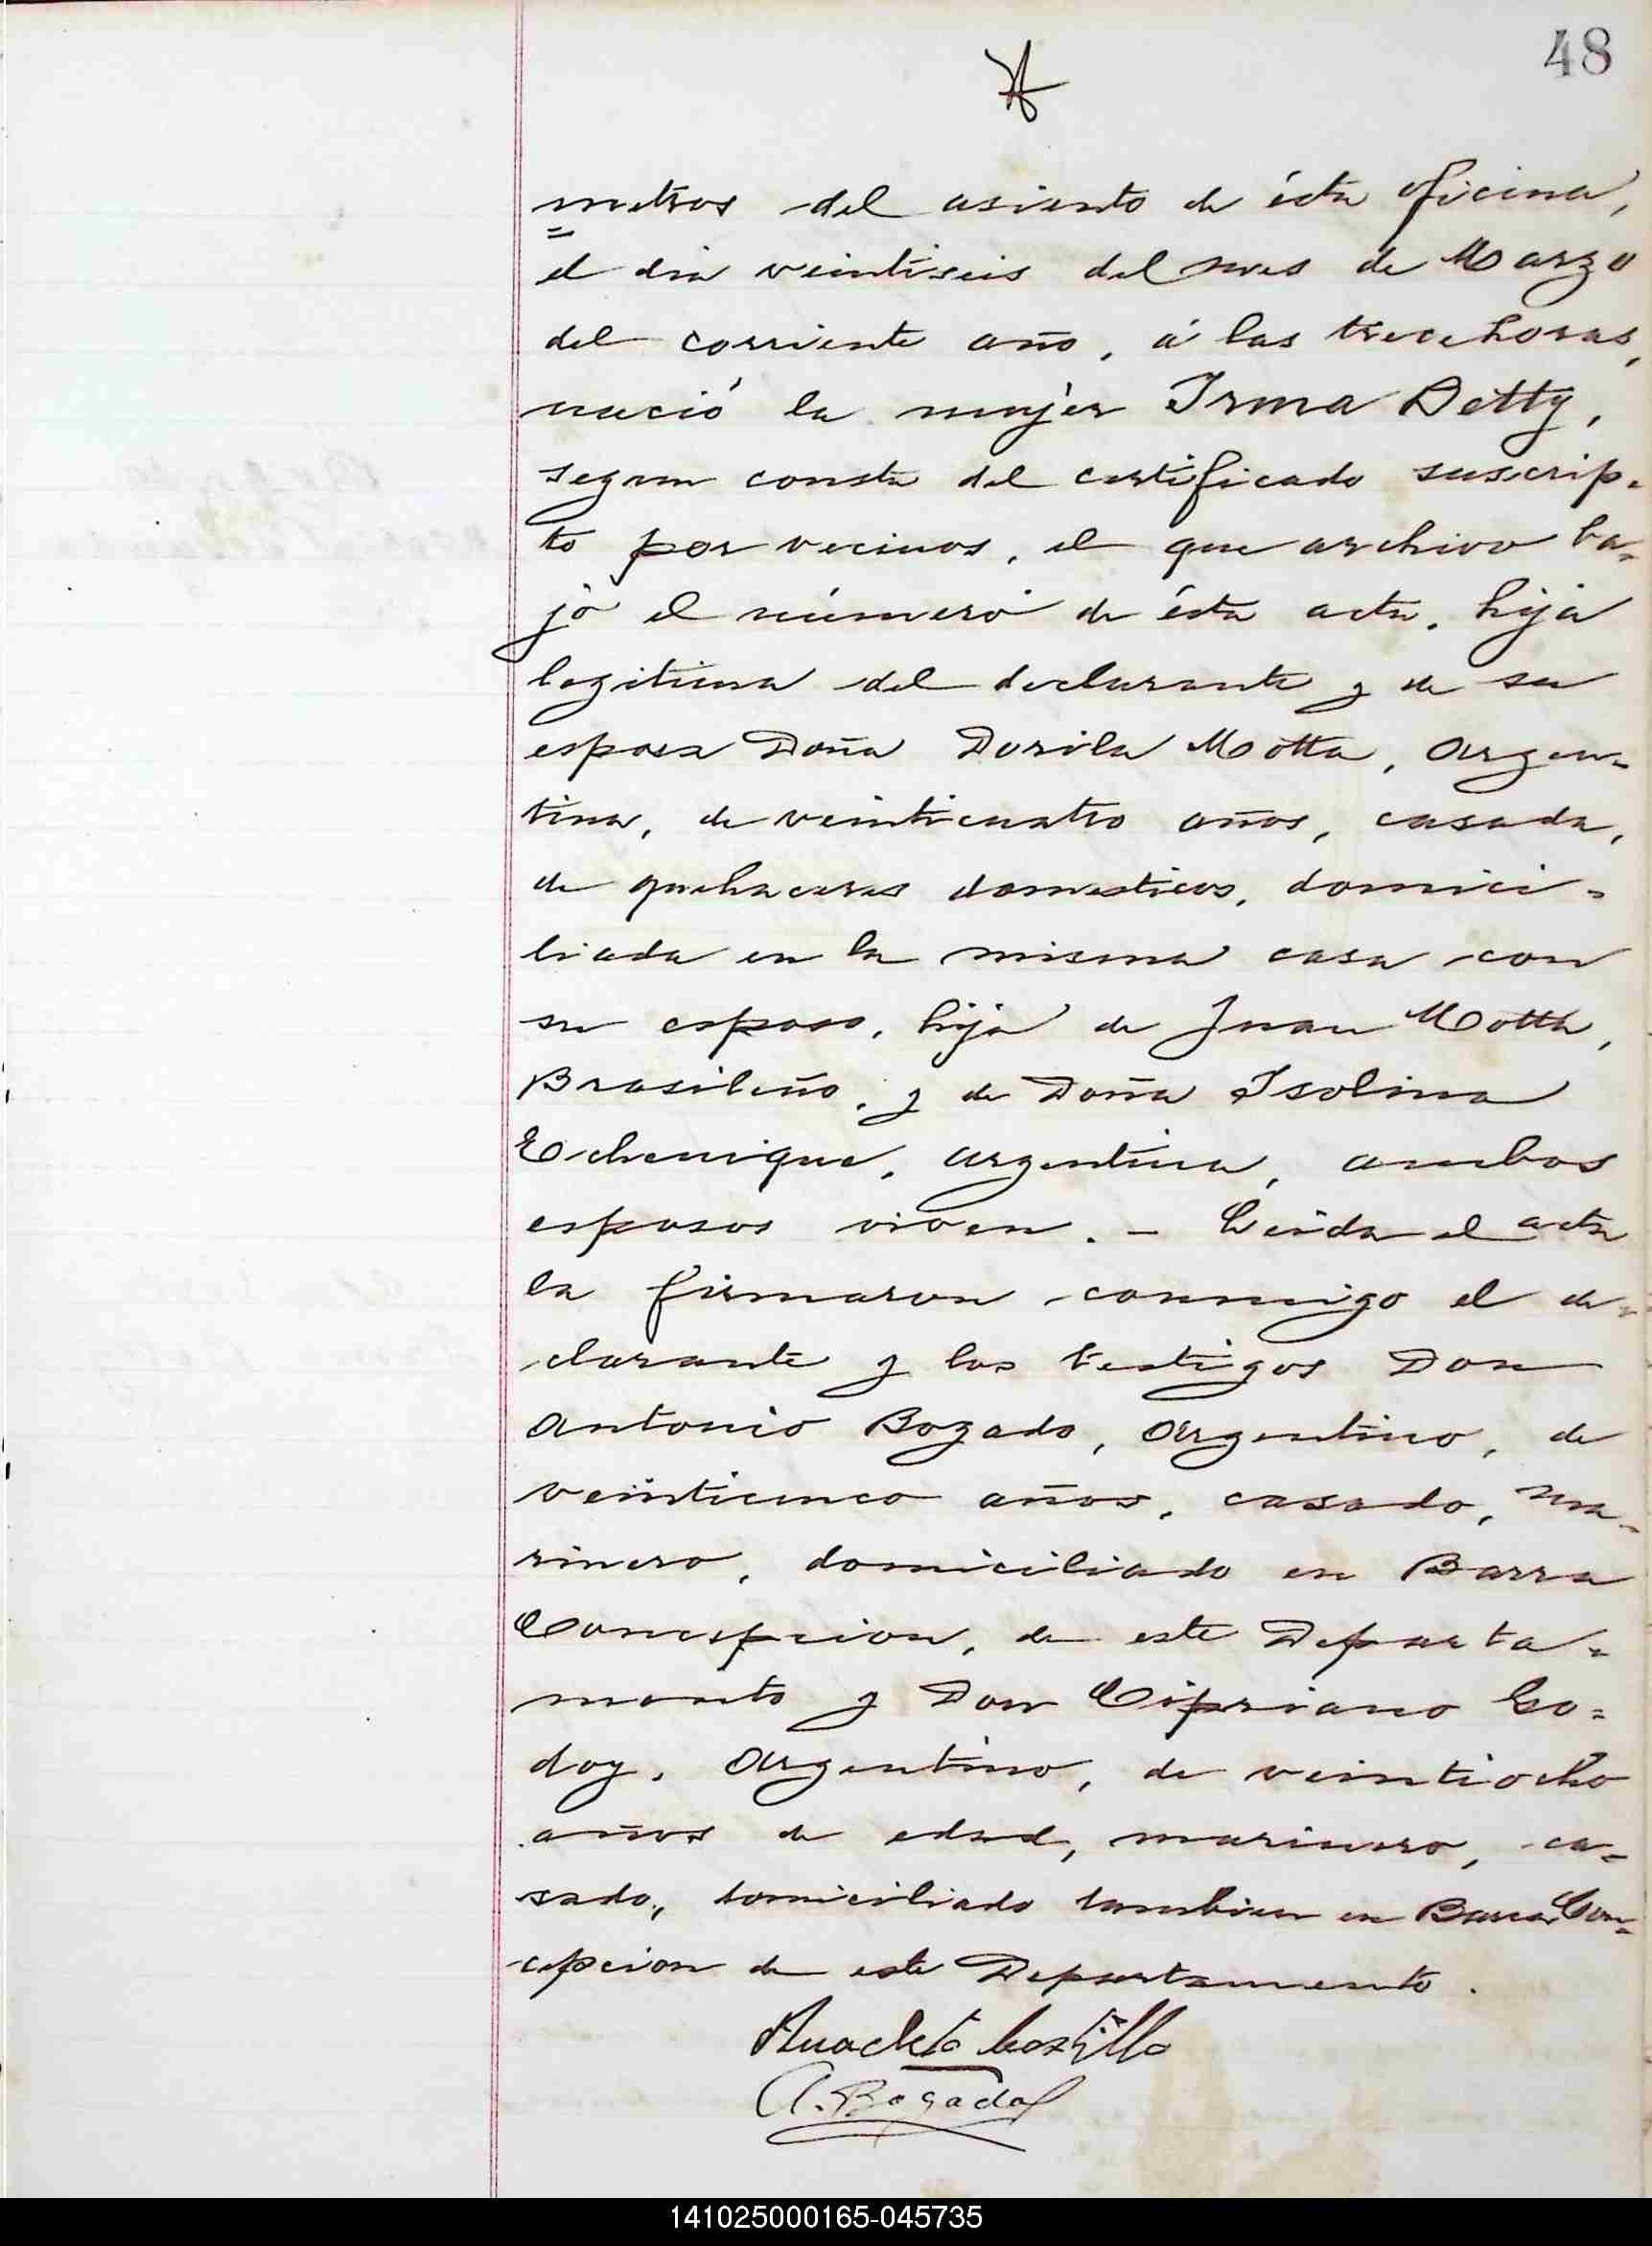 48
metros del asiento de ésta oficina,
el dia veintiseis del mes de Marzo
del corriente año, á las trece horas,
nació la mujer Irma Betty,
segun consta del certificado suscrip-
to por vecinos, el que archivo ba-
jo el número de ésta acta. hija
legitima del declarante y de su
esposa Doña Dorila Motta, Argen-
tina, de veinticuatro años, casada,
de quehaceres domesticos, domici-
liada en la misma casa con
su esposo, hija de Juan Motta,
Brasileño, y de Doña Isolina
Echenique, argentina, ambos
esposos viven. - Leida el acta
la firmaron conmigo el de-
clarante y los testigos Don
Antonio Bogado, Argentino, de
veinticinco años, casado, ma-
rinero, domiciliado en Barra
Concepcion, de este Departa-
mento y Don Cipriano Go-
doy, Argentino, de veintiocho
años de edad, marinero, ca-
sado, domiciliado tambien en Barra Con-
cepcion de este Departamento.
Anacleto Castillo
A. Bogado
141025000165-045735